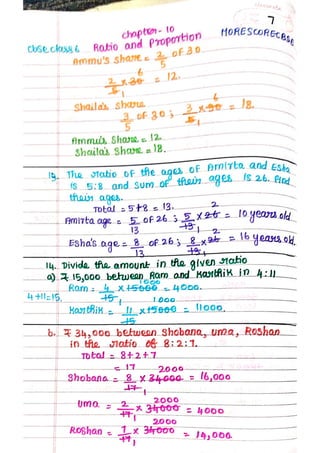 7
chapter - 10 MORESCORECBSE
CBSE class 6 Ratio and Proportion
Ammu's share = 2/5 of 30
6
2/5 × 30 = 12.
1
Shaila's share
6
3/5 of 30 ; 3/5 × 30 = 18.
1
Ammu's Share = 12.
Shaila's Share = 18.
13. The ratio of the ages of Amirta and Esha
is 5:8 and sum of their ages is 26. Find
their ages.
Total = 5+8 = 13. 2
Amirta age = 5/13 of 26 ; 5/13 × 26 = 10 years old
1 2
Esha's age = 8/13 of 26 ; 8/13 × 26 = 16 years old.
1
14. Divide the amount in the given ratio
a) ₹ 15,000 between Ram and Karthik in 4:11
1000
Ram = 4/15 × 15000 = 4000.
4+11=15. 1 1000
Karthik = 11/15 × 15000 = 11000.
1
b. ₹ 34,000 between Shobana, Uma, Roshan
in the ratio of 8:2:7.
Total = 8+2+7
= 17 2000
Shobana = 8/17 × 34000 = 16,000
1 2000
Uma = 2/17 × 34000 = 4000
1 2000
Roshan = 7/17 × 34000 = 14,000
1